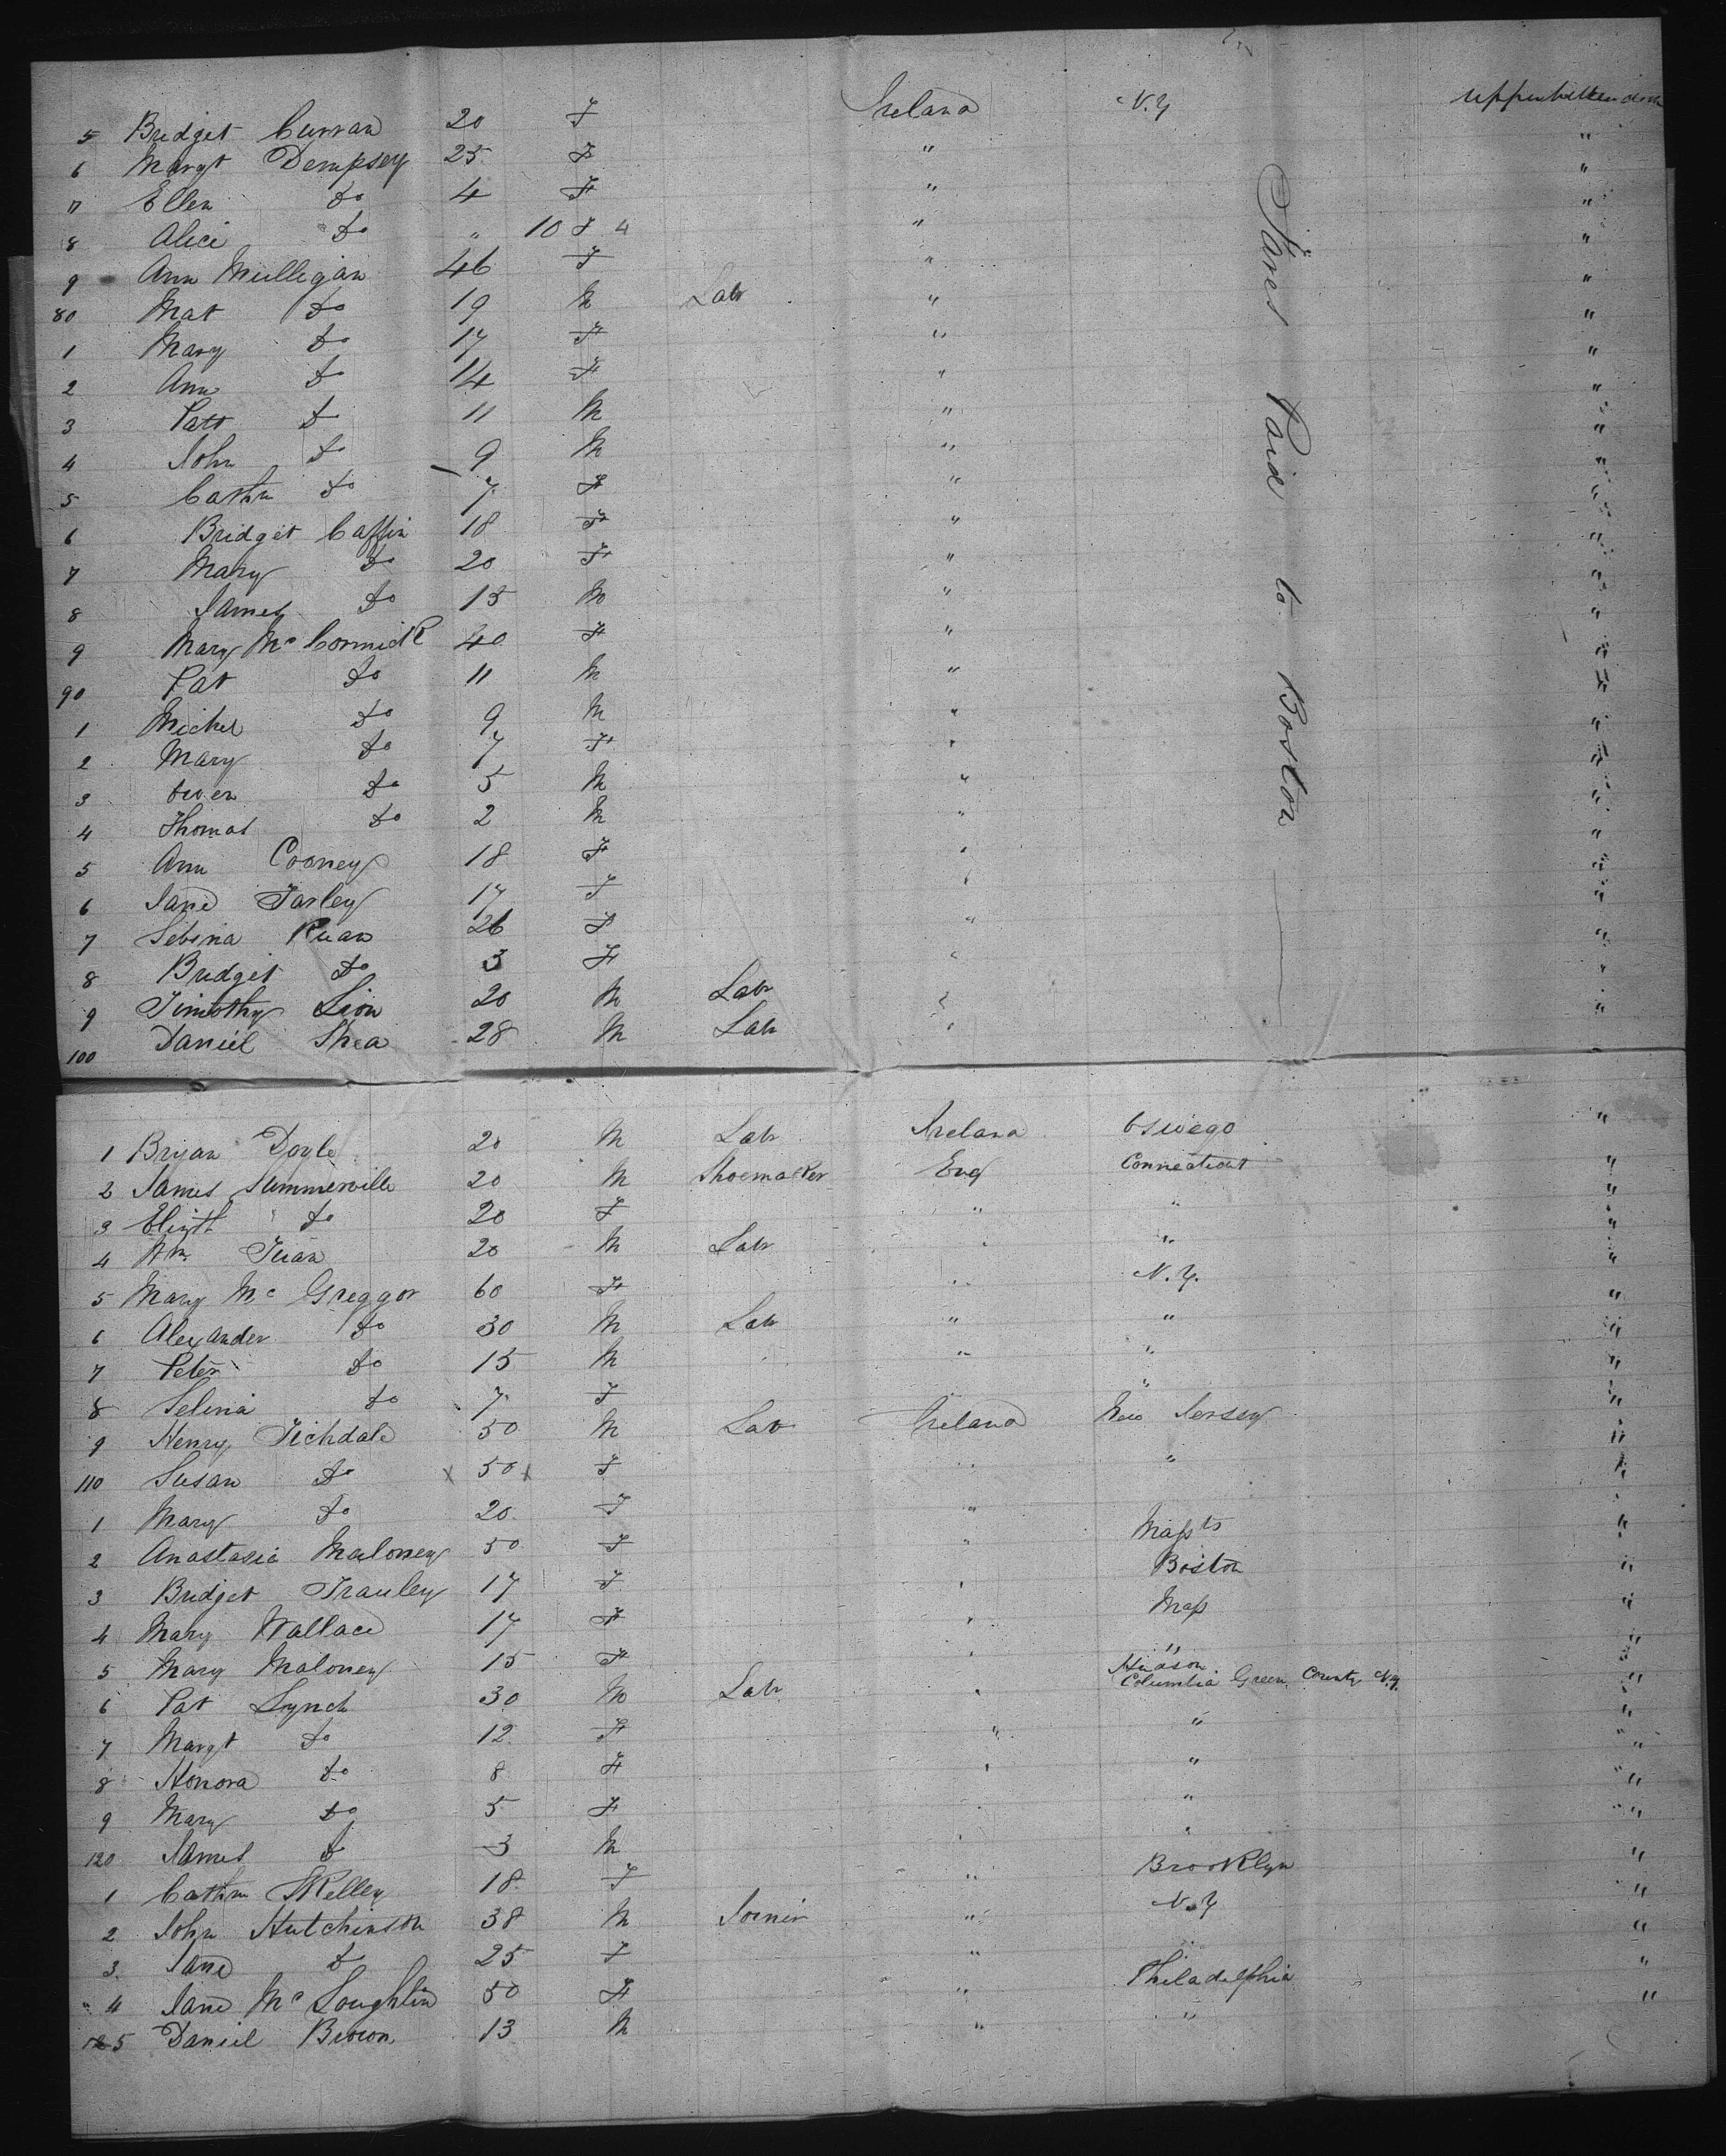 5 Bridget Curran 20 F Ireland N.Y
6 Margt Dempsey 25 F "
7 Ellen Do 4 F " "
8 Alice Do " 10 F 4 " "
9 Ann Mulligan 46 F " "
80 Mat Do 19 M Labr " "
1 Mary Do 17 F " "
2 Ann Do 14 F " "
3 Patt Do 11 M " "
4 John Do 9 M " "
5 Cathn Do 7 F " "
6 Bridget Caffin 18 F " "
7 Mary Do 20 F " "
8 James Do 15 M " "
9 Mary Mc Cormick 40 F " "
90 Pat Do 11 M " "
1 Michel Do 9 M " "
2 Mary Do 7 F " "
3 Owen Do 5 M " "
4 Thomas Do 2 M " "
5 Ann Cooney 18 F " "
6 Jane Farley 17 F " "
7 Sebina Ruan 26 F " "
8 Bridget Do 3 F " "
9 Timothy Lion 20 M Labr " "
100 Daniel Shea 28 M Labr " "
Fares Paid to Boston
1 Bryan Doyle 20 M Labr Ireland Oswego "
2 James Summerville 20 M Shoemaker Eng Connecticut "
3 Elizth Do 20 F " " "
4 Wm 20 M Labr " " "
5 Mary Mc Greggor 60 F " N.Y. "
6 Alexander Do 30 M Labr " " "
7 Peter Do 15 M " " "
8 Selina Do 7 F " "
9 Henry Tichdale 50 M Labr Ireland New Jersey "
110 Susan Do x 50 x F " " "
1 Mary Do 20 F " "
2 Anastasia Maloney 50 F " Massts "
3 Bridget Frauley 17 F " Boston "
4 Mary Wallace 17 F " Mass "
5 Mary Maloney 15 F " " "
6 Pat Lynch 30 M Labr " Hudson Columbia Green County N.Y. "
7 Margt Do 12 F " " "
8 Honora Do 8 F " " "
9 Mary Do 5 F " " "
120 James Do 3 M " " "
1 Cathn Skelley 18 F " Brooklyn "
2 John Hutchinson 38 M Joiner " N.Y "
3 Jane Do 25 F " " "
4 Jane Mc Loughlin 50 F " Philadelphia "
125 Daniel Brown 13 M " " "